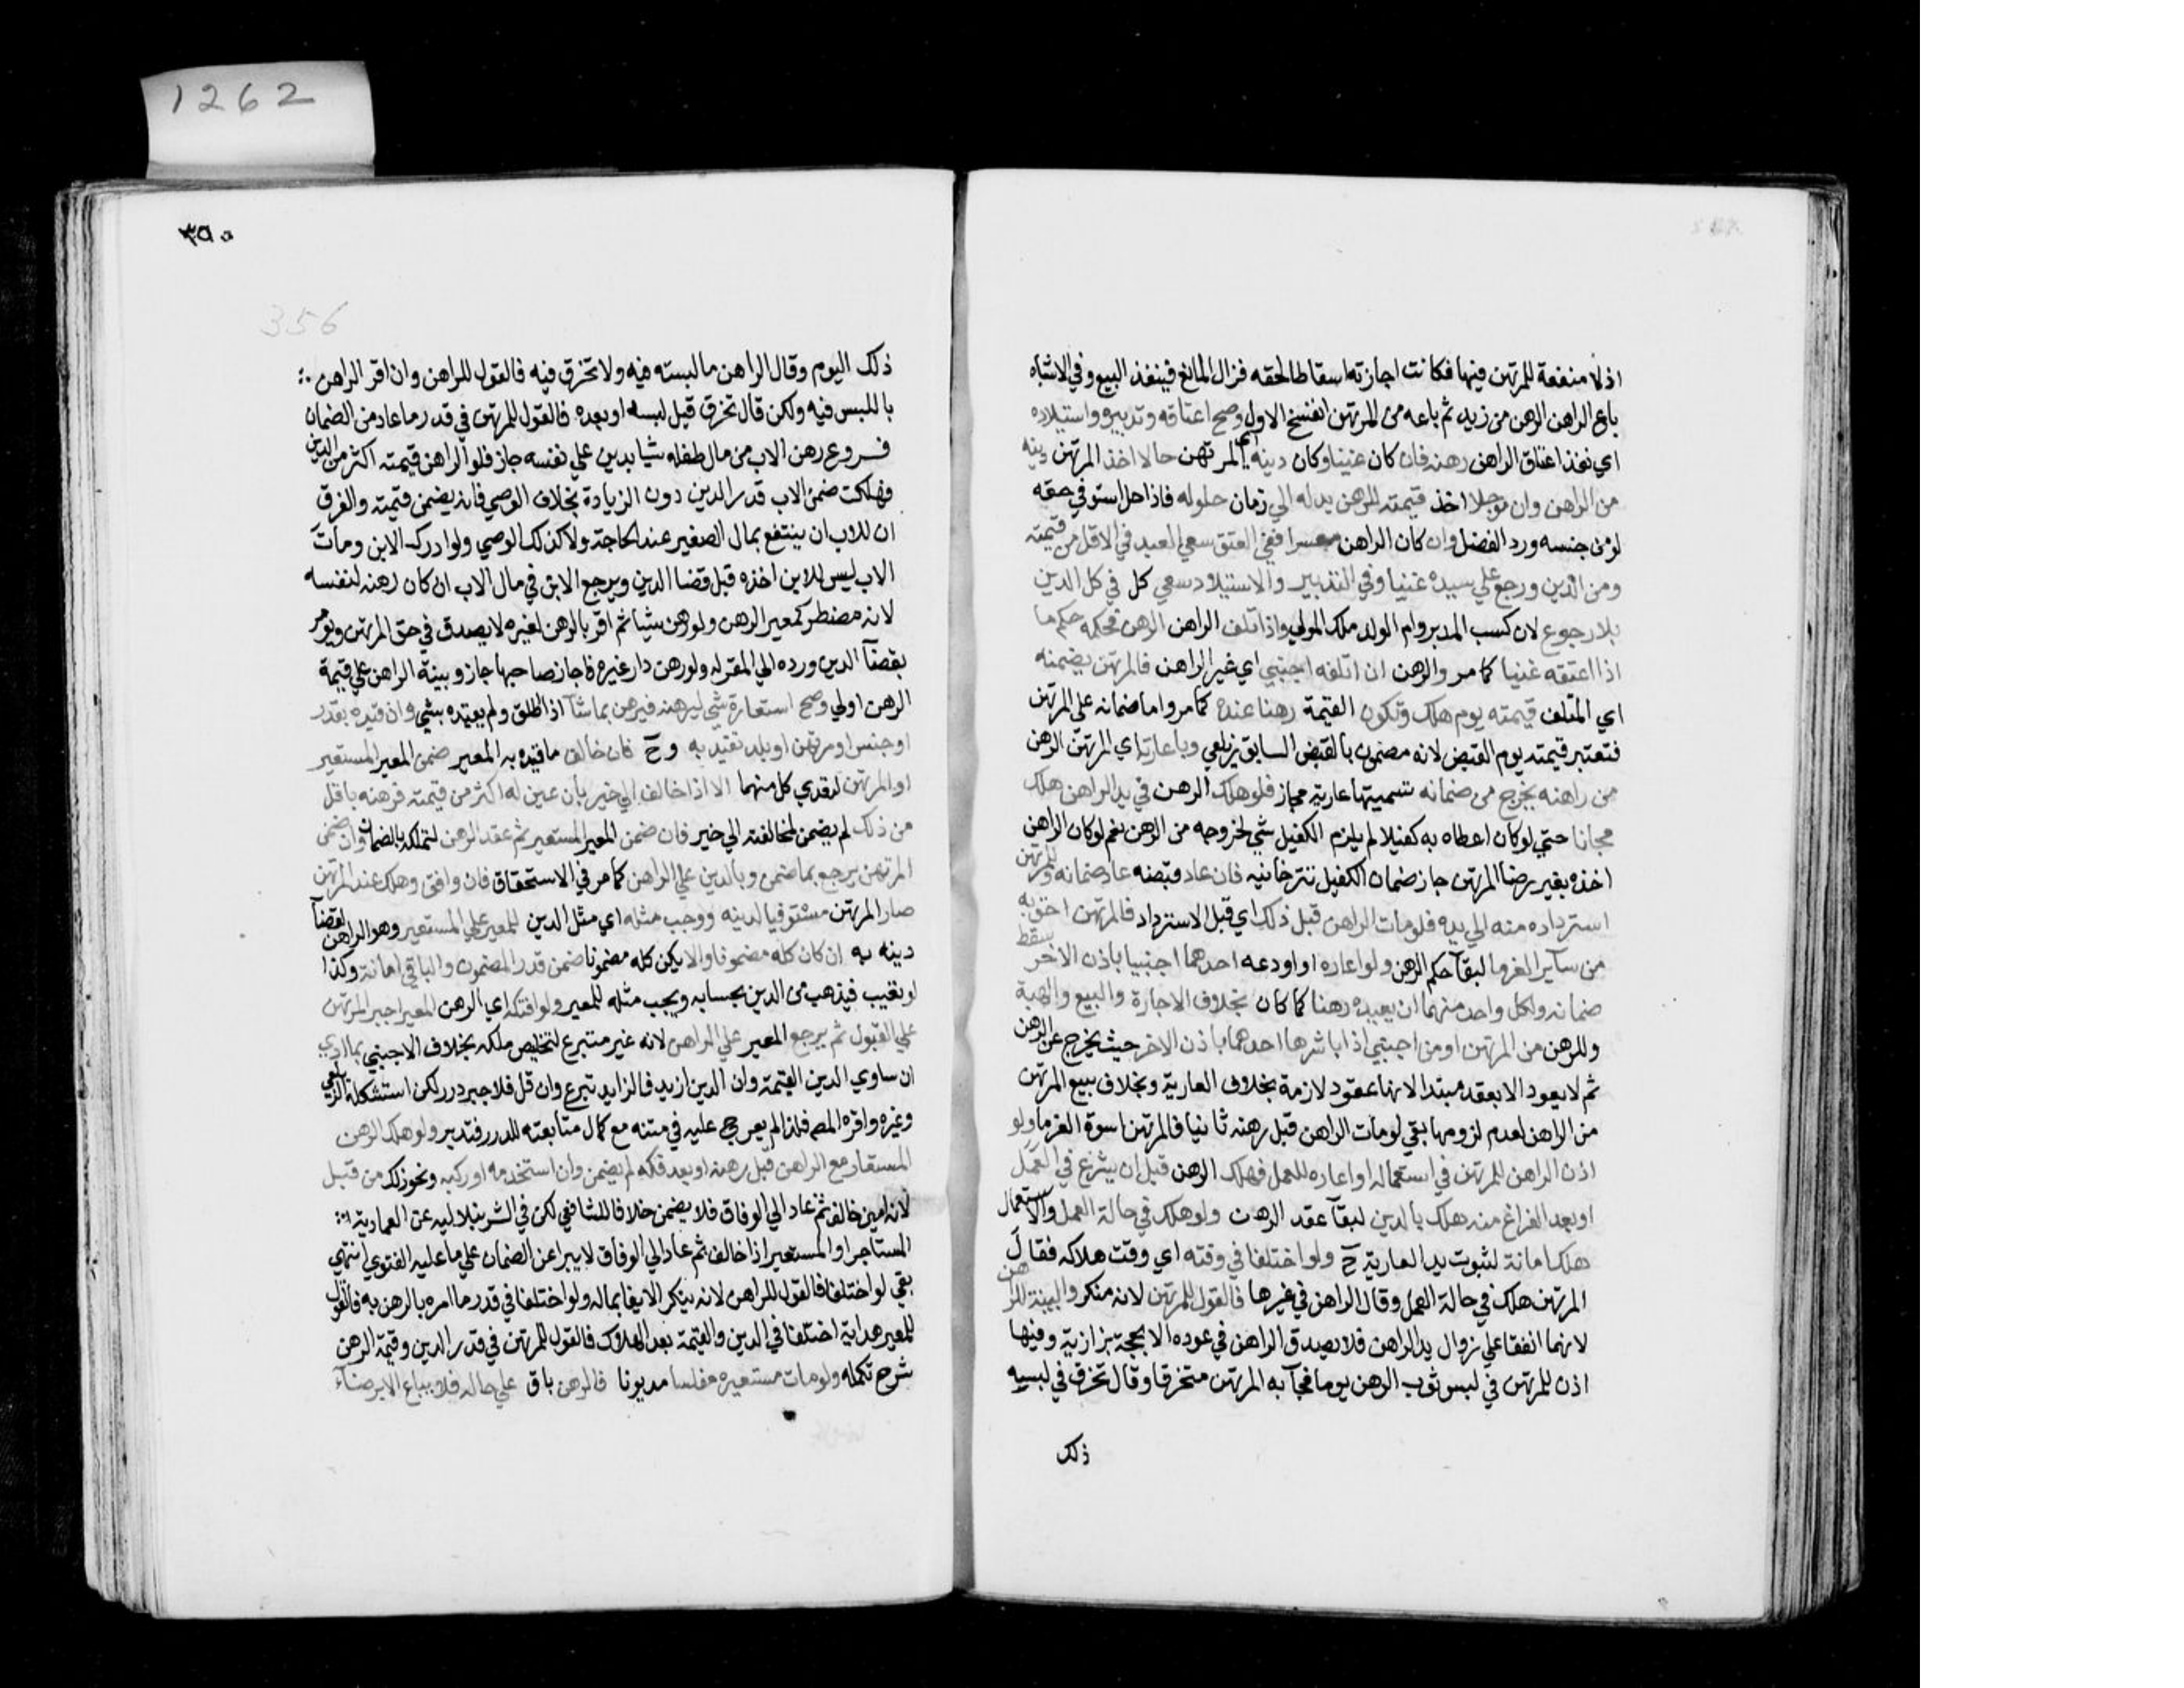 اذ لا منفعة للمرتهن فيها فكانت اجازته اسقاطا لحقه فزال المانع فينفذ البيع وفي الاشباه
باع الراهن الرهن من زيد ثم باعه من المرتهن انفسخ الاول وصح اعتاقه وتدبيره واستيلاده
اي نفذ اعتاق الراهن رهنه فان كان غنيا وكان دينه اي المرتهن حالا اخذ المرتهن دينه
من الراهن وان موجلا اخذ قيمته للرهن بدله الي زمان حلوله فاذا حل استوفي حقه
لو من جنسه ورد الفضل وان كان الراهن معسرا ففي العتق سعي العبد في الاقل من قيمته
ومن الدين ورجع علي سيده غنيا وفي التدبير والاستيلاد سعي كل في كل الدين
بلا رجوع لان كسب المدبر وام الولد ملك المولي واذا تلف الراهن الرهن فحكمه حكم ما
اذا اعتقه غنيا كما مر والرهن ان اتلفه اجنبي اي غير الراهن فالمرتهن يضمنه
اي المتلف قيمته يوم هلك وتكون القيمة رهنا عنده كما مر واما ضمانه علي المرتهن
فتعتبر قيمته يوم القبض لانه مضمون بالقبض السابق زيلعي وباعارته اي المرتهن الرهن
من راهنه يخرج من ضمانه تسميتها عارية مجاز فلو هلك الرهن في يد الراهن هلك
مجانا حتي لو كان اعطاه به كفيلا لم يلزم الكفيل شي لخروجه من الرهن نعم لو كان الراهن
اخذه بغير رضا المرتهن جاز ضمان الكفيل تترخانيه فان عاد قبضه عاد ضمانه وللمرتهن
استرداده منه الي يده فلو مات الراهن قبل ذلك اي قبل الاسترداد فالمرتهن احق به
من ساير الغرما لبقآ حكم الرهن ولو اعاره او اودعه احدهما اجنبيا باذن الاخر سقط
ضمانه ولكل واحد منهما ان يعيده رهنا كما كان بخلاف الاجارة والبيع والهبة
والرهن من المرتهن او من اجنبي اذا باشرها احدهما باذن الاخر حيث يخرج عن الرهن
ثم لا يعود الا بعقد مبتدا لانها عقود لازمة بخلاف العارية وبخلاف بيع المرتهن
من الراهن لعدم لزومها بقي لو مات الراهن قبل رهنه ثانيا فالمرتهن اسوة الغرما ولو
اذن الراهن للمرتهن في استعماله او اعاره للعمل فهلك الرهن قبل ان يشرع في العمل
او بعد الفراغ منه هلك بالدين لبقآ عقد الرهن ولو هلك في حالة العمل والاستعمال
هلك امانة لثبوت يد العارية ح ولو اختلفا في وقته اي وقت هلاكه فقال
المرتهن هلك في حالة العمل وقال الراهن في غيرها فالقول للمرتهن لانه منكر والبينة للراهن
لانهما اتفقا علي زوال يد الراهن فلا يصدق الراهن في عوده الا بحجة بزازية وفيها
اذن للمرتهن في لبس ثوب الرهن يوما فجآ به المرتهن متخرقا وقال تخرق في لبسه
ذلك
٣٥٠
356
ذلك اليوم وقال الراهن ما لبسته فيه ولا تخرق فيه فالقول للراهن وان اقر الراهن
باللبس فيه ولكن قال تخرق قبل لبسه او بعده فالقول للمرتهن في قدر ما عاد من الضمان
فروع رهن الاب من مال طفله شيا بدين علي نفسه جاز فلو الراهن قيمته اكثر من الدين
فهلكت ضمن الاب قدر الدين دون الزيادة بخلاف الوصي فانه يضمن قيمته والفرق
ان للاب ان ينتفع بمال الصغير عند الحاجة ولا كذلك الوصي ولو ادرك الابن ومات
الاب ليس للابن اخذه قبل قضا الدين ويرجع الابن في مال الاب ان كان رهنه لنفسه
لانه مضطر كمعير الرهن ولو رهن شيا ثم اقر بالرهن لغيره لا يصدق في حق المرتهن ويومر
بقضآ الدين ورده الي المقر له ولو رهن دار غيره فاجاز صاحبها جاز وبينة الراهن علي قيمة
الرهن اولي وصح استعارة شي ليرهنه فيرهن بما شآ اذا اطلق ولم يقيده بشي وان قيده بقدر
او جنس او مرتهن او بلد تقيد به وح فان خالف ما قيده به المعير ضمن المعير المستعير
او المرتهن لتعدي كل منهما الا اذا خالف الي خير بان عين له اكثر من قيمته فرهنه باقل
من ذلك لم يضمن لمخالفته الي خير فان ضمن المعير المستعير تم عقد الرهن لتملكه بالضمان وان ضمن
المرتهن يرجع بما ضمن وبالدين علي الراهن كما مر في الاستحقاق فان وافق وهلك عند المرتهن
صار المرتهن مستوفيا لدينه ووجب مثله اي مثل الدين للمعير علي المستعير وهو الراهن لقضآ
دينه به ان كان كله مضمونا والا يكن كله مضمونا ضمن قدر المضمون والباقي امانة وكذا
لو تعيب فيذهب من الدين بحسابه ويجب مثله للمعير ولو افتكه اي الرهن المعير اجبر المرتهن
علي القبول ثم يرجع المعير علي الراهن لانه غير متبرع لتخليص ملكه بخلاف الاجنبي بما ادي
ان ساوي الدين القيمة وان الدين ازيد فالزايد تبرع وان قل فلا جبر درر لكن استشكله الزيلعي
وغيره واقره المص فلذا لم يعرج عليه في متنه مع كمال متابعته للدرر فتدبر ولو هلك الرهن
المستعار مع الراهن قبل رهنه او بعد فكه لم يضمن وان استخدمه او ركبه ونحو ذلك من قبل
لانه امين خالف ثم عاد الي الوفاق فلا يضمن خلافا للشافعي لكن في الشرنبلاليه عن العمادية
المستاجر او المستعير اذا خالف ثم عاد الي الوفاق لا يبرا عن الضمان علي ما عليه الفتوي انتهي
بقي لو اختلفا فالقول للراهن لانه ينكر الايفا بماله ولو اختلفا في قدر ما امره بالرهن به فالقول
للمعير هداية اختلفا في الدين والقيمة بعد الهلاك فالقول للمرتهن في قدر الدين وقيمة الرهن
شرح تكمله ولو مات مستعيره مفلسا مديونا فالرهن باق علي حاله فلا يباع الا برضآء
1262